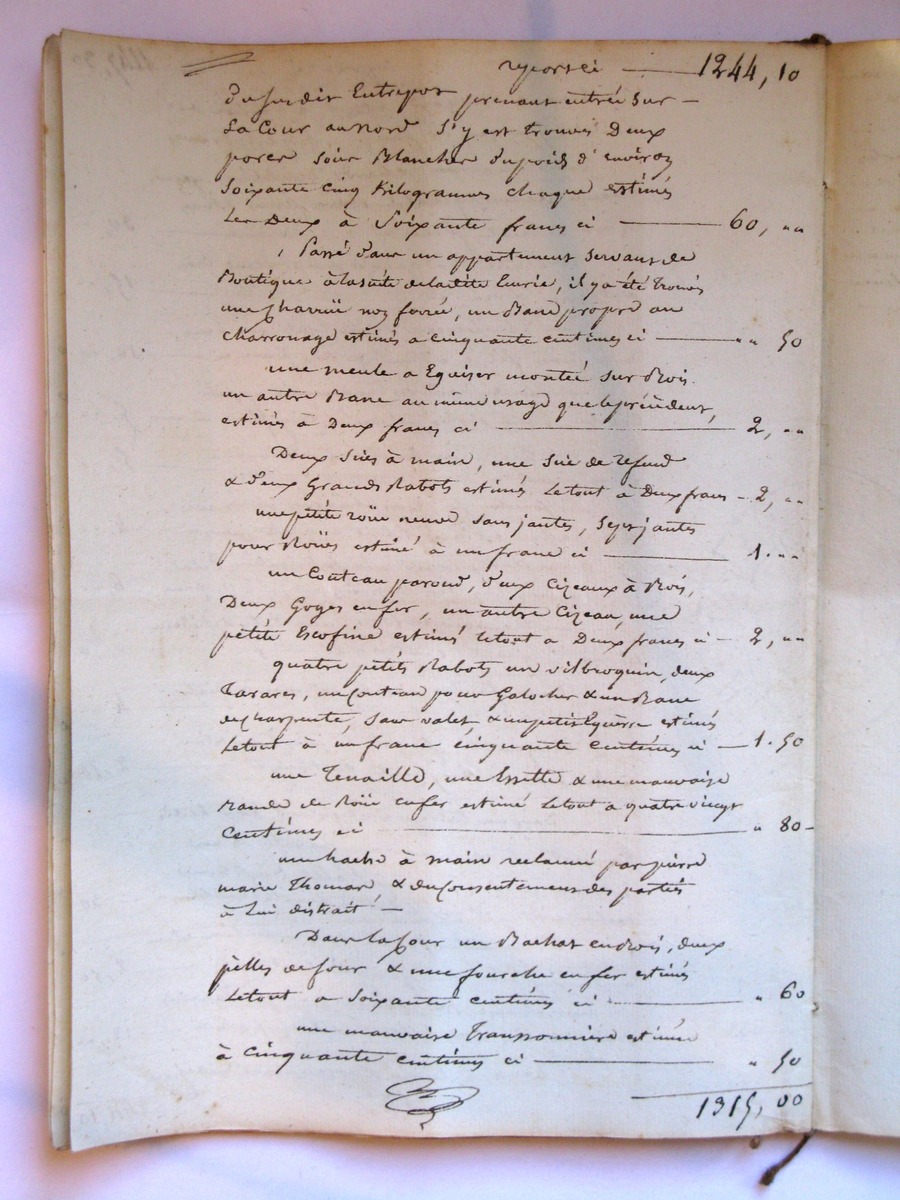 report ci — 1244, 10
du susdit Entrepot prenant entrée sur —
la Cour au nord s'y est trouvé Deux
porcs soies Blanches du poids d'environ
soixante cinq Kilogrammes chaque estimés
les Deux à Soixante francs ci — 60, ""
Passé dans un appartement servant de
Boutique à la suite de la dite Ecurie, il y a été trouvé
une charrüe non ferrée, un Banc propre au
charronage estimés a cinquante centimes ci — " " 50
une meule a Eguiser montée sur Bois
un autre Banc au même usage que le précédent,
estimés à Deux francs ci — 2, ""
Deux Sies à main, une Sie de refend
& deux Grands Rabots estimés le tout à Deux francs — 2, ""
une petite roüe neuve sans jantes, Sept jantes
pour Roües estimé à un franc ci — 1. ""
un Couteau paroud, deux Cizeaux à Bois,
Deux Goyes en fer, un autre Cizeau, une
petite Escofine estimé le tout a Deux francs ci — 2, ""
quatre petits Rabots un vilbroquin, deux
Tarares, un couteau pour Galoches & un Banc
de charpente, sans valet, & un petit Equerre estimés
le tout à un franc cinquante centimes ci — 1. 50
une Tenaille, une Essette & une mauvaise
Bande de Roüe en fer estimé le tout a quatre vingt
centimes ci — " 80 -
une hache à main reclamé par pierre
marie Thomas & du Consentement des parties
à lui distrait —
Dans la Cour un Bachat en Bois, deux
pelles de four & une fourche en fer estimés
le tout a Soixante centimes ci — " 60
une mauvaise Transsonnière estimée
à Cinquante centimes ci — " 50
1315, 00